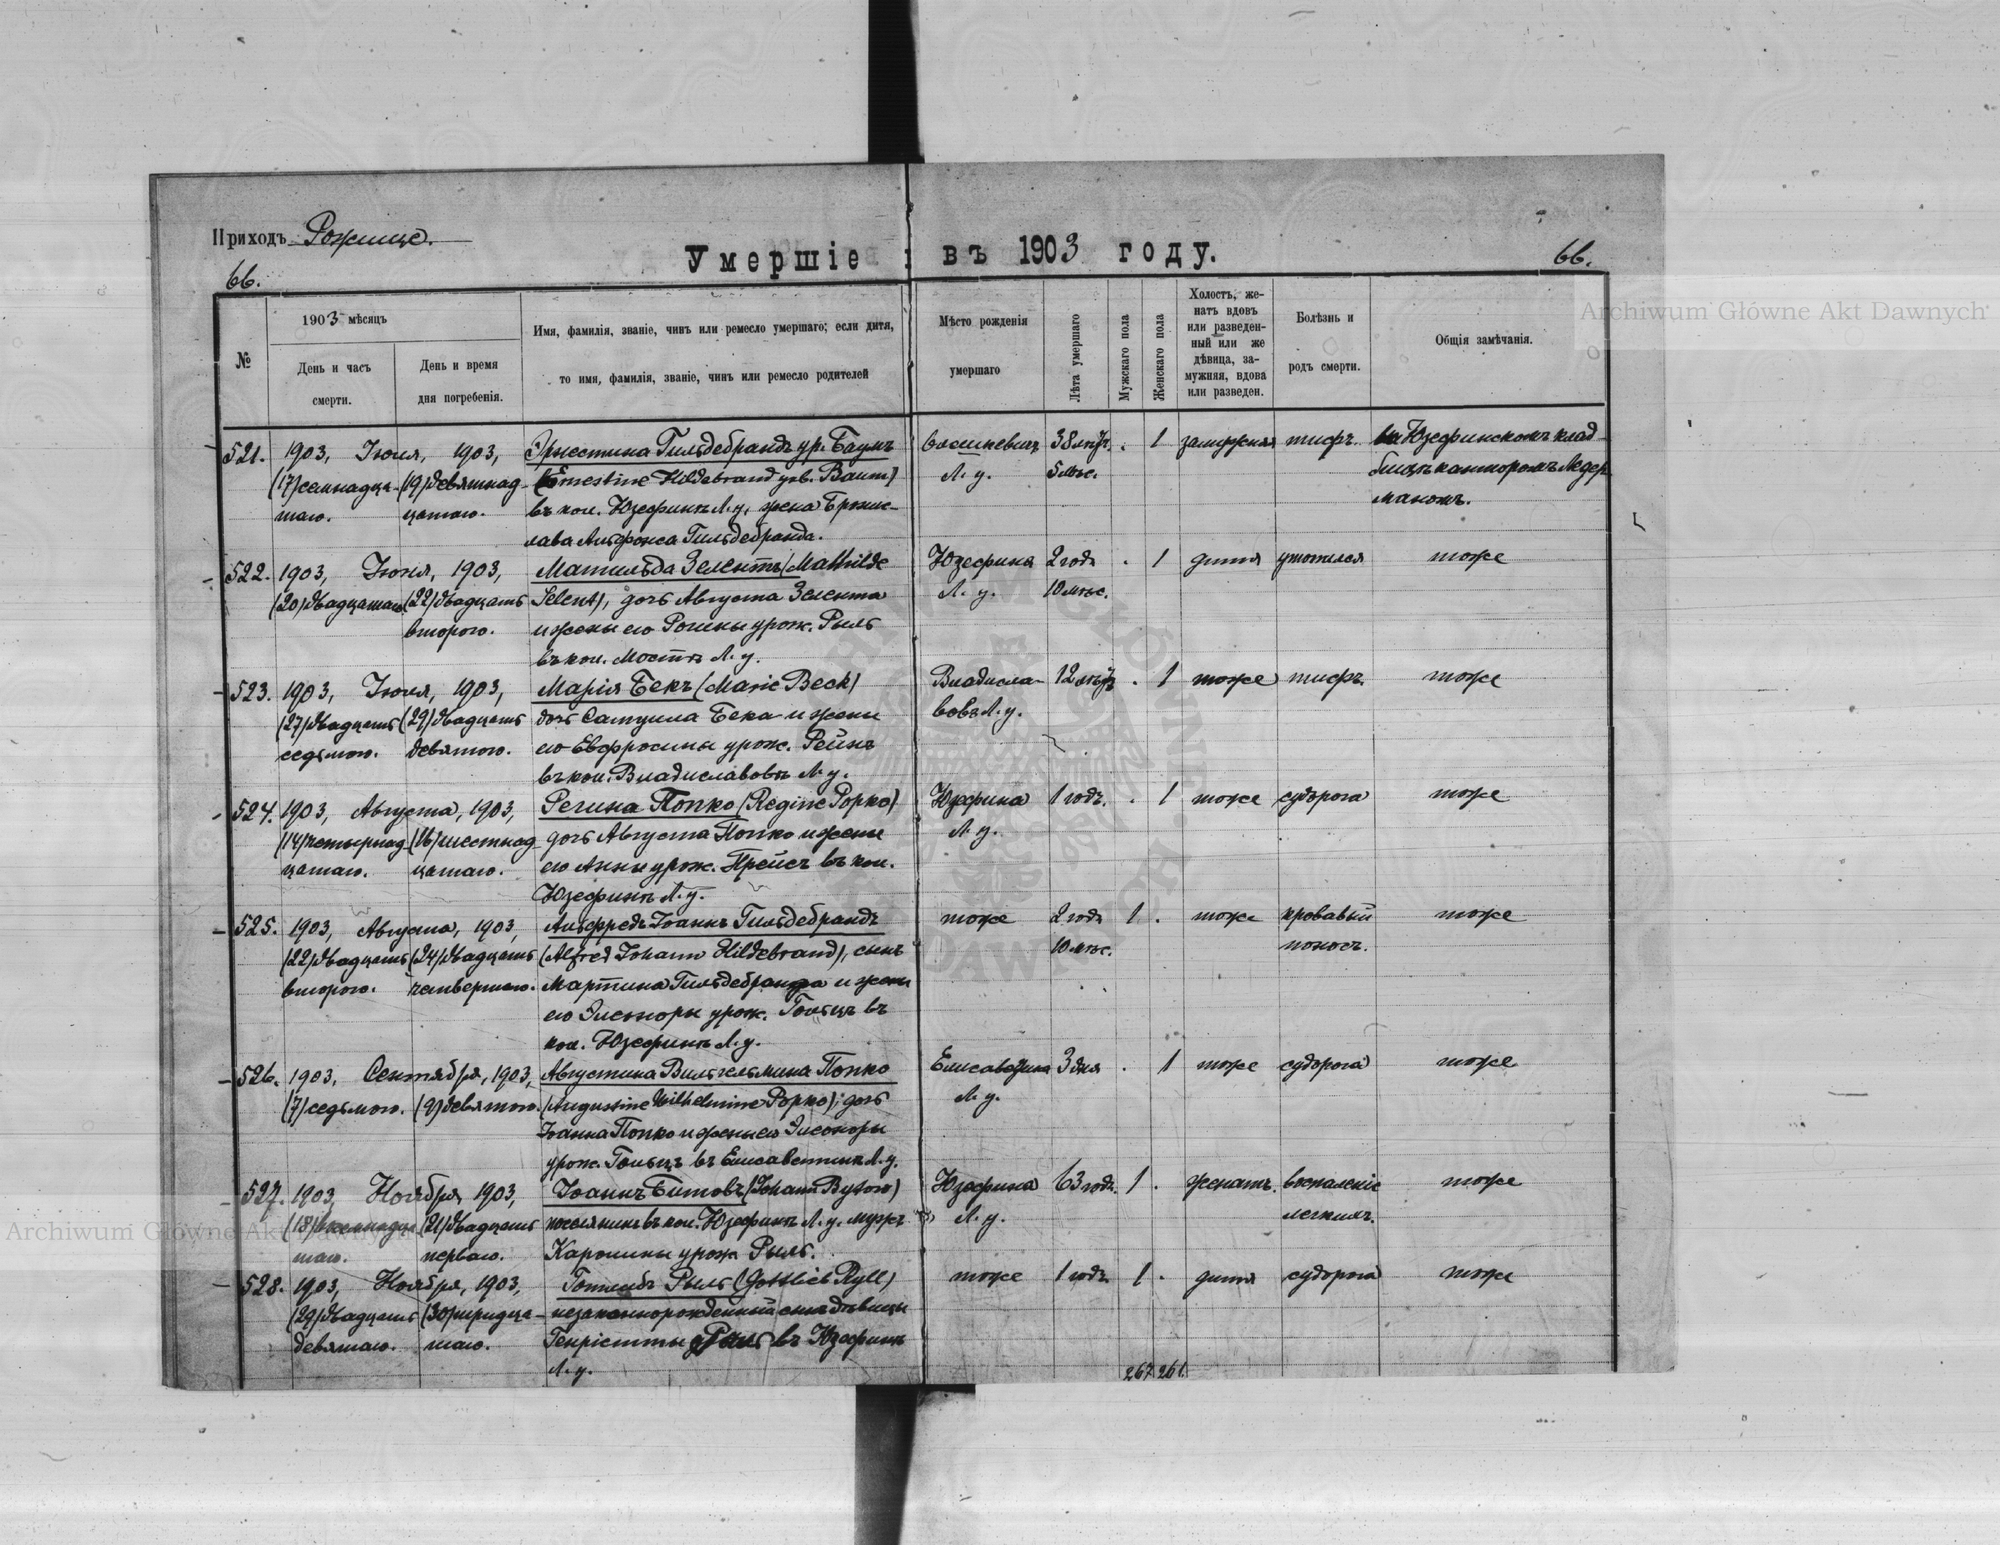 Приходъ Рожище.
Умершіе въ 1903 году.
66.
66.
№
1903 мѣсяцъ
День и часъ
смерти.
День и время
дня погребенія.
Имя, фамилія, званіе, чинъ или ремесло умершаго; если дитя,
то имя, фамилія, званіе, чинъ или ремесло родителей
Мѣсто рожденія
умершаго
Лѣта умершаго
Мужскаго пола
Женскаго пола
Холостъ, же-
натъ вдовъ
или разведен-
ный или же
дѣвица, за-
мужняя, вдова
или разведен.
Болѣзнь и
родъ смерти.
Общія замѣчанія.
521.
1903, Іюля, 1903,
(17) семнадца-
таго.
(19) девятнад-
цатаго.
Эрнестина Гильдебрандъ ур. Баумъ
(Ernestine Hildebrand geb. Baum)
въ кол. Юзефинѣ Л. у., жена Бронис-
лава Альфонса Гильдебранда.
Л. у.
38 лѣтъ.
5 мѣс.
. 1
замужняя
тифъ.
на Юзефинскомъ клад-
бищѣ канторомъ Ледер-
маномъ.
522.
1903, Іюля, 1903,
(20) двадцатаго
(22) двадцать
второго.
Матильда Зелентъ (Mathilde
Selent), дочь Августа Зелента
и жены его Розины урож. Рыль
въ кол. Мостѣ Л. у.
Юзефина
Л. у.
2 года
10 мѣс.
. 1
дитя
утопился
тоже
523.
1903, Іюля, 1903,
(27) двадцать
седьмого.
(29) двадцать
девятого.
Марія Бекъ (Marie Beck)
дочь Самуила Бека и жены
его Евфросины урож. Рейнъ
въ кол. Владиславовѣ Л. у.
Владисла-
вовъ Л. у.
12 лѣтъ
. 1
тоже
тифъ.
тоже
524.
1903, Августа, 1903,
(14) четырнад-
цатаго.
(16) шестнад-
цатаго.
Регина Попко (Regine Popko)
дочь Августа Попко и жены
его Анны урож. Прейсъ въ кол.
Юзефинѣ Л. у.
Юзефина
Л. у.
1 годъ.
. 1
тоже
судорога
тоже
525.
1903, Августа, 1903,
(22) двадцать
второго.
(24) двадцать
четвертого.
Альфредъ Іоаннъ Гильдебрандъ
(Alfred Johann Hildebrand), сынъ
Мартина Гильдебранда и жены
его Элеоноры урож. Гольцъ въ
кол. Юзефинѣ Л. у.
тоже
2 года
10 мѣс.
1 .
тоже
кровавый
поносъ.
тоже
526.
1903, Сентября, 1903,
(7) седьмого.
(9) девятого.
Августина Вильгельмина Попко
(Augustine Wilhelmine Popko), дочь
Іоанна Попко и жены его Элеоноры
урож. Гольцъ въ Елисаветинѣ Л. у.
Елисаветина
Л. у.
3 дня
. 1
тоже
судорога
тоже
527.
1903, Ноября, 1903,
(18) восемнадца-
таго.
(21) двадцать
перваго.
Іоаннъ Битовъ (Johann Bytow)
поселянинъ въ кол. Юзефинѣ Л. у. мужъ
Каролины урож. Рыль.
Юзефина
Л. у.
63 года.
1 .
женатъ.
воспаленіе
легкихъ.
тоже
528.
1903, Ноября, 1903,
(29) двадцать
девятаго.
(30) тридца-
таго.
Готлибъ Рыль (Gottlieb Ryll)
незаконнорожденный сынъ дѣвицы
Генріетты Рыль въ Юзефинѣ
Л. у.
тоже
1 годъ
1 .
дитя
судорога
тоже
267 261.
Archiwum Główne Akt Dawnych
Archiwum Główne Akt Dawnych